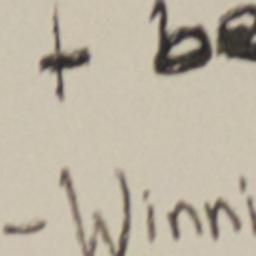 + be
- Winni